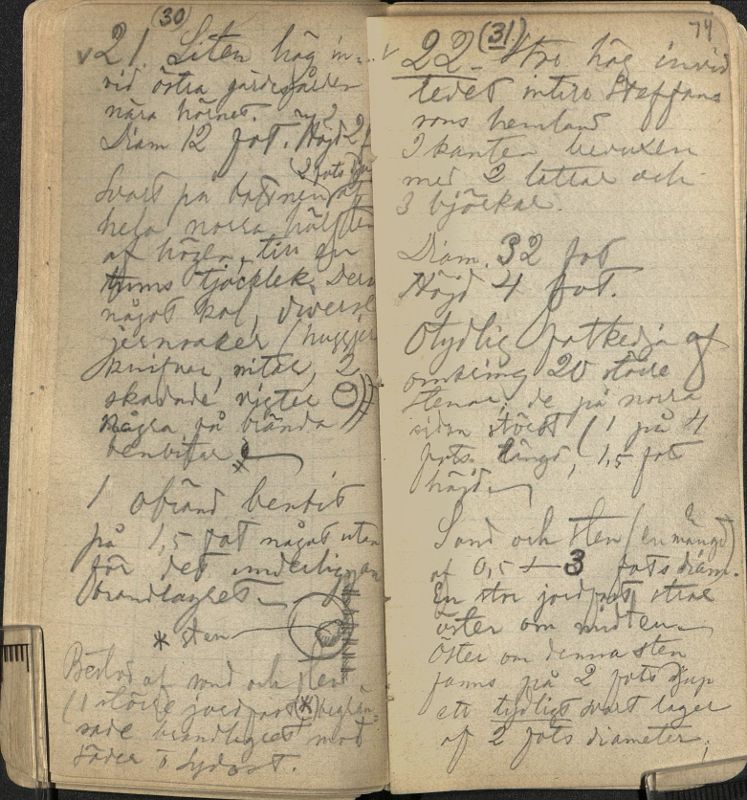 (30)
21. Liten hög in
vid östra gärdesgården
nära hörnet.
Diam 12 fot. Höjd 2
(2 fots
Svart på bottnen
hela norra hälften
af högen, till en
tums tjocklek. Deri
något kol, diverse
jernsaker (
knifvar, nitar, 2
skadade vigter
Några få brända
benbitar
1 obränd benbit
på 1,5 fot något utan
för det
brandlagret.
* sten
Bestod af sand och sten
(1 större jordfast (*)
sade brandlagret mot
söder o sydost.
(31)
74
22. Stor hög invid
ledet intill Steffans
sons hemland
I kanten bevuxen
med 2 tallar och
3 björkar.
Diam. 32 fot
Höjd 4 fot.
Otydlig fotkedja af
omkring 20 större
stenar, de på norra
sidan störst (1 på 4
fots längd, 1,5 fots
höjd
Sand och sten (en mängd)
af 0,5 - 3 fots diam.
En stor jordfast strax
öster om midten
Öster om denna sten
fanns på 2 fots djup
ett tydligt svart lager
af 2 fots diameter,